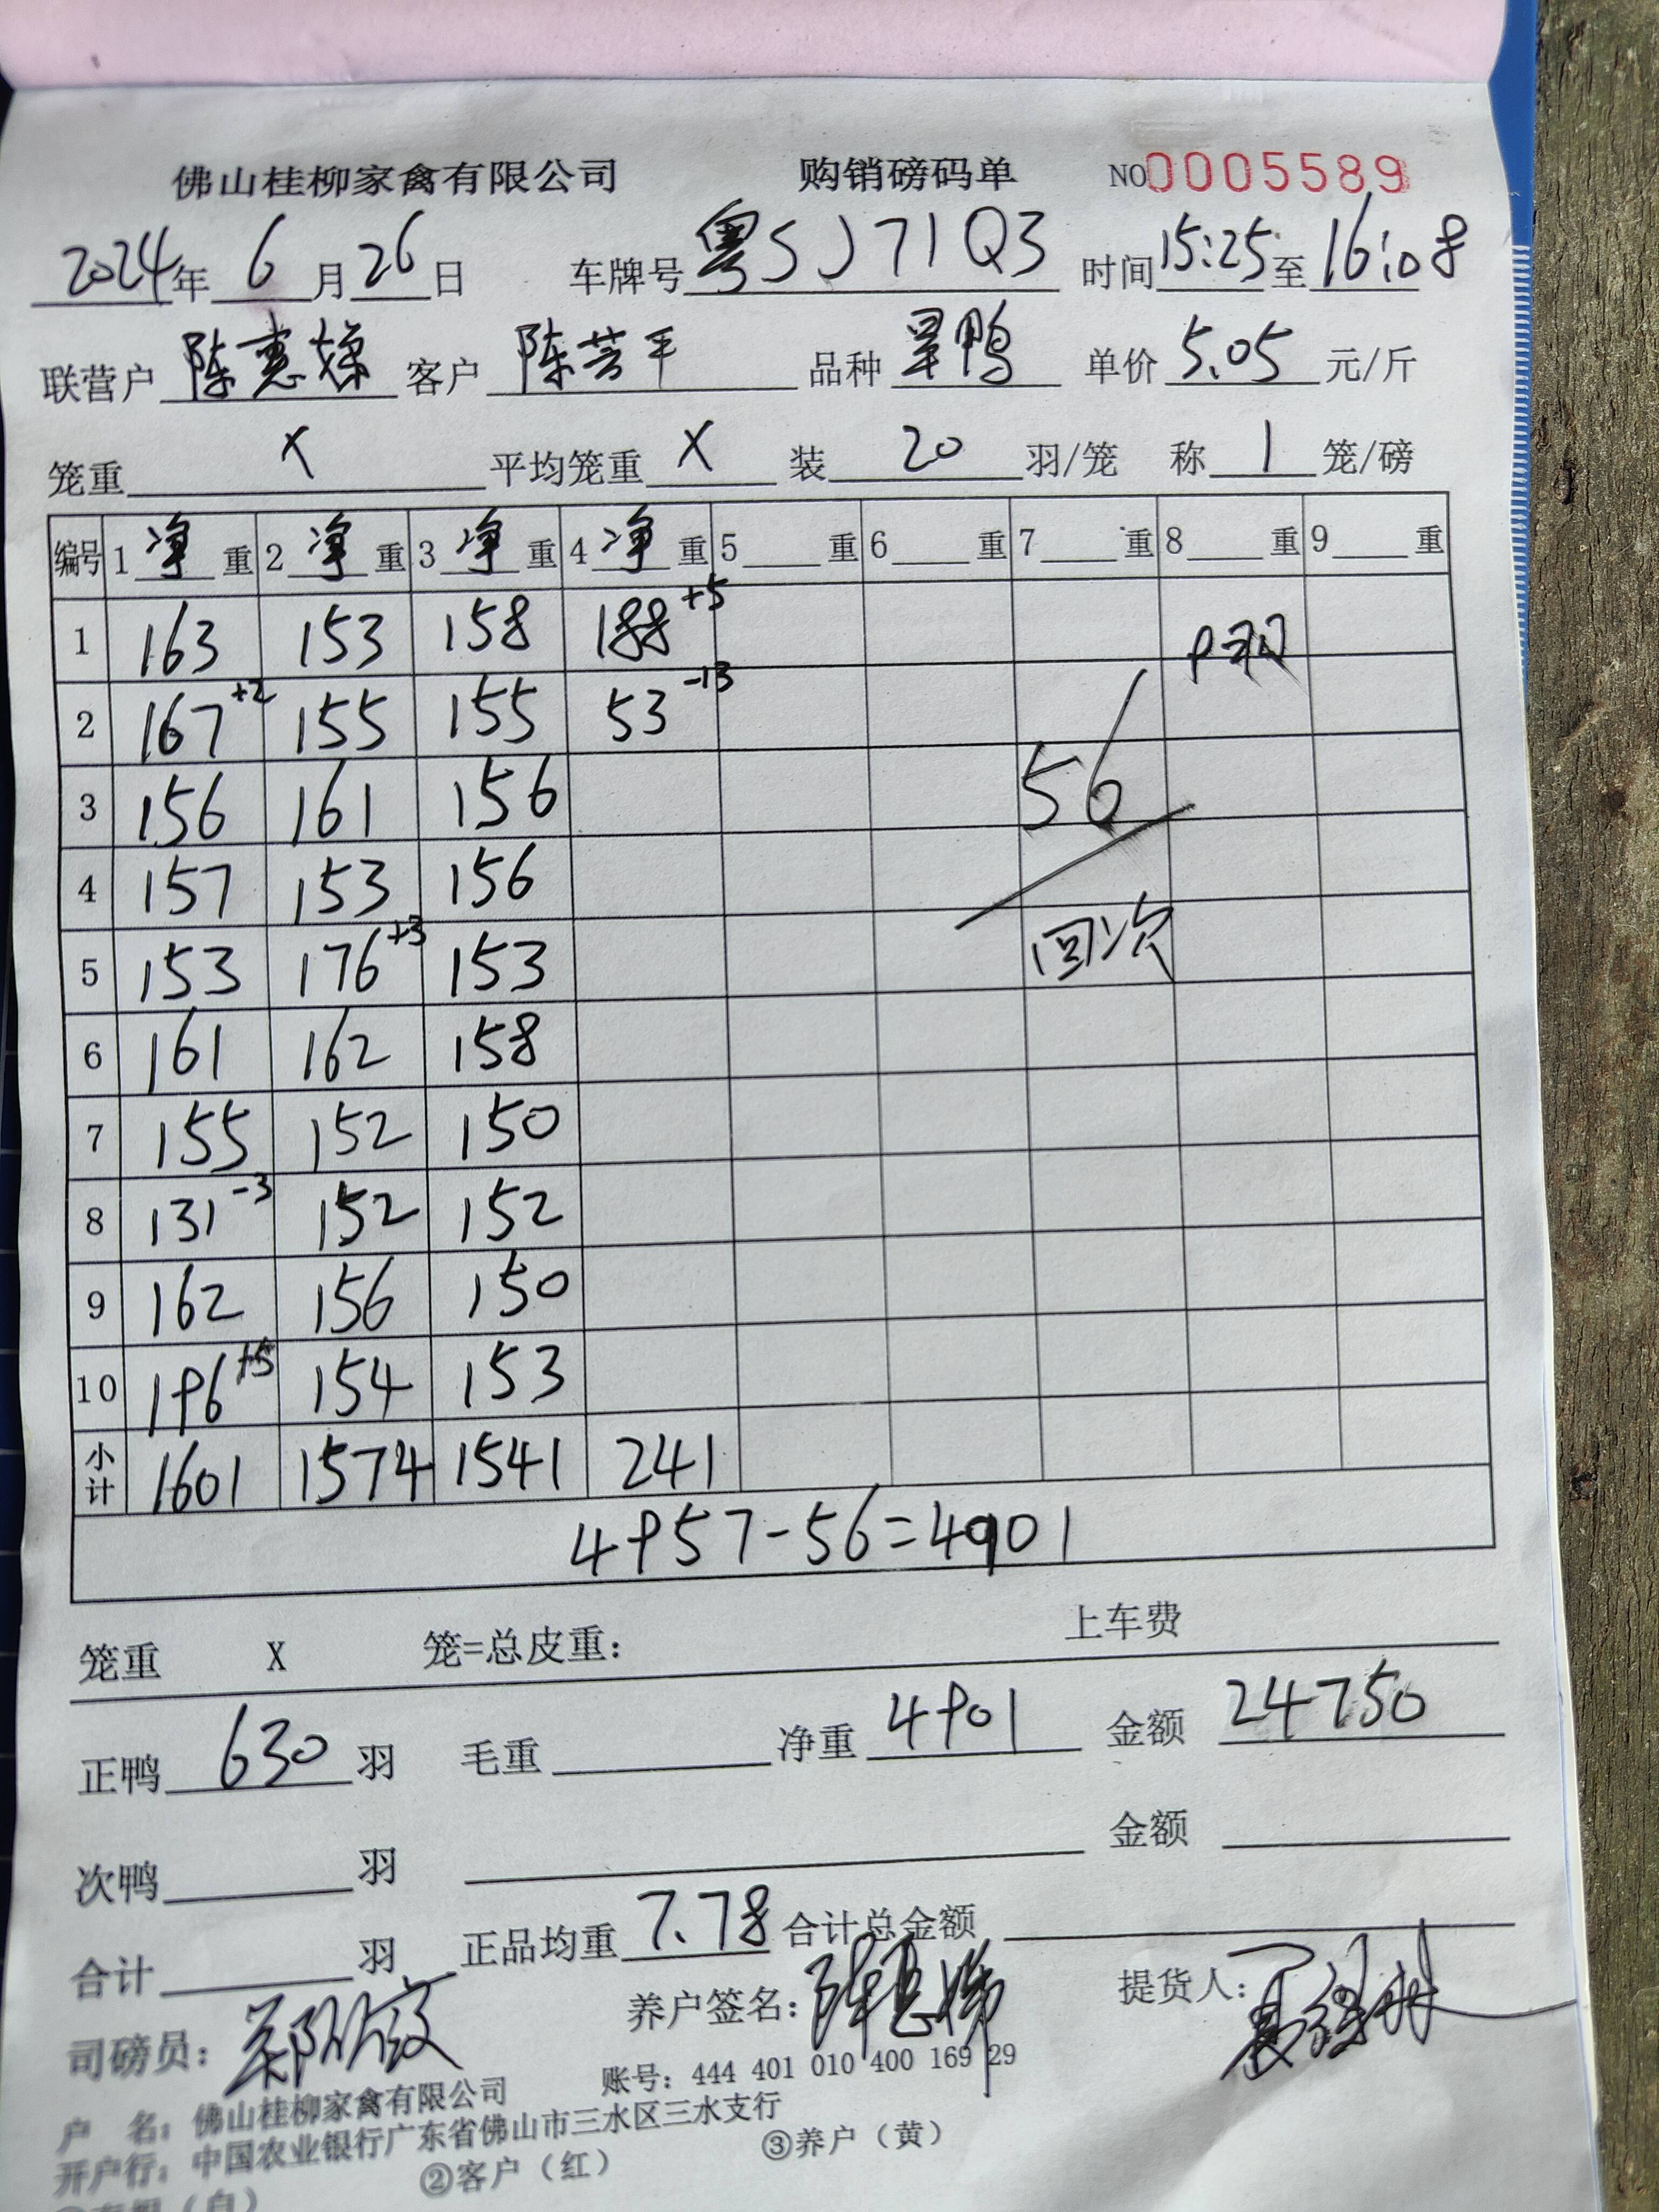 佛山桂柳家禽有限公司 购销磅码单 NO 0005589
2024年 6 月 26 日 车牌号 粤SJ71Q3 时间 15:25 至 16:08
联营户 陈惠娣 客户 陈芸平 品种 旱鸭 单价 5.05 元/斤
笼重 X 平均笼重 X 装 20 羽/笼 称 1 笼/磅
编号 1 净 重 2 净 重 3 净 重 4 净 重 5 重 6 重 7 重 8 重 9 重
1 163 153 158 188 +5
2 167 +2 155 155 53 -13
3 156 161 156 56
4 157 153 156
5 153 176 +3 153 回次
6 161 162 158
7 155 152 150
8 131 -3 152 152
9 162 156 150
10 196 +5 154 153
小计 1601 1574 1541 241
4957-56=4901
笼重 X 笼=总皮重: 上车费
正鸭 630 羽 毛重 净重 4901 金额 24750
次鸭 羽 金额
合计 羽 正品均重 7.78 合计总金额
司磅员: 养户签名: 陈惠娣 提货人:
户 名: 佛山桂柳家禽有限公司 账号: 444 401 010 400 169 29
开户行: 中国农业银行广东省佛山市三水区三水支行
②客户（红） ③养户（黄）